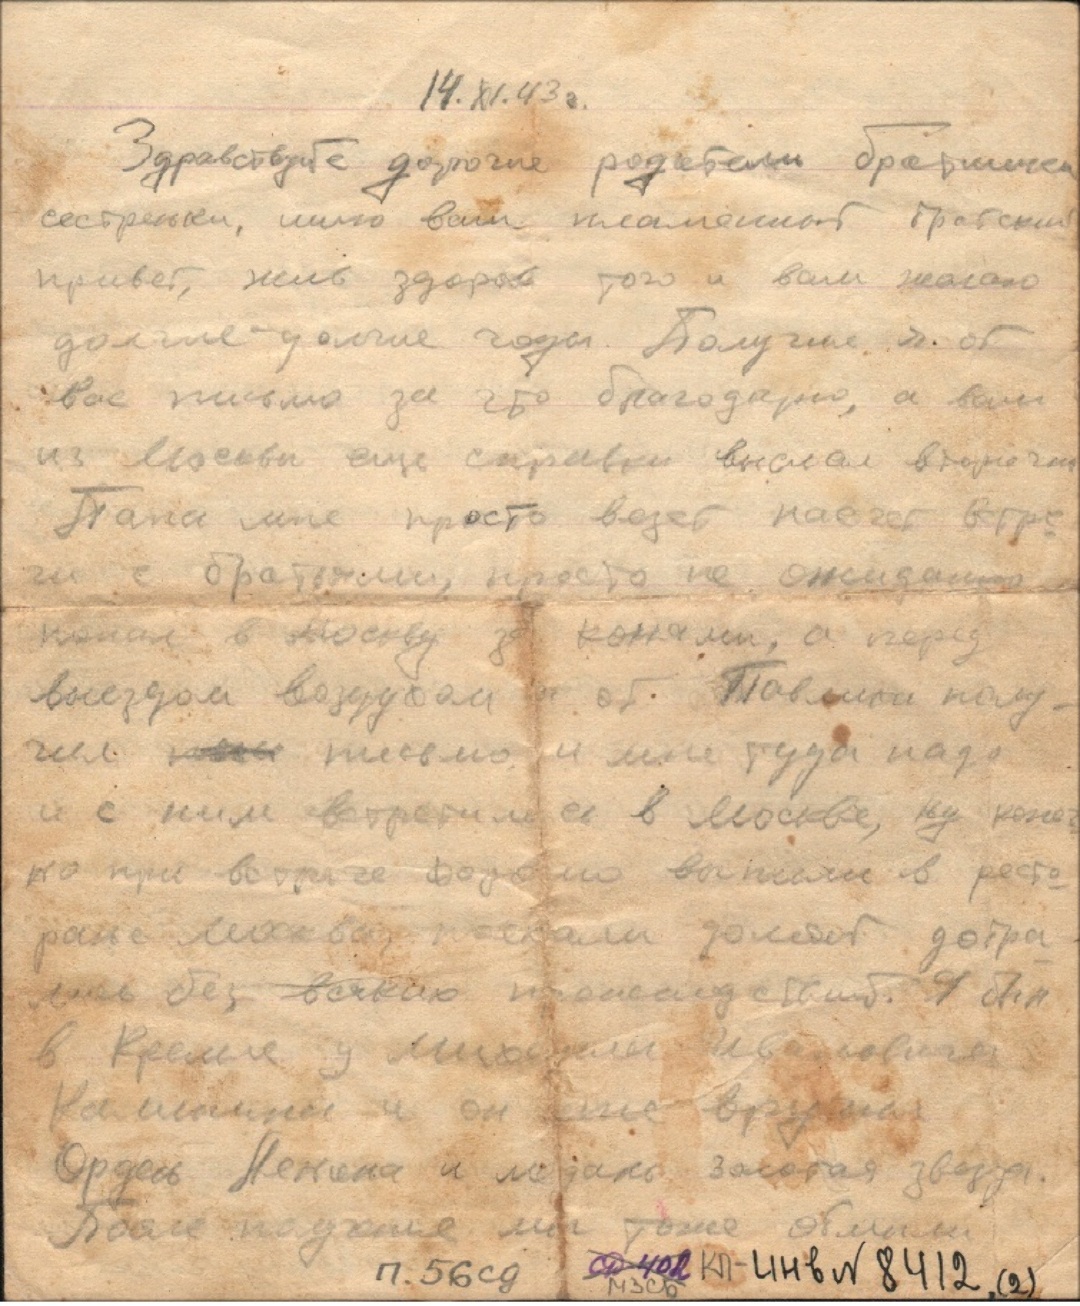 14.XI.43 г.
Здравствуйте дорогие родители братишки
сестреньки, шлю вам пламенный братский
привет, жив здоров того и вам желаю
долгие долгие годы. Получил я от
вас письмо за что благодарю, а вам
из Москвы еще справки выслал вторично
Папа мне просто везет насчет встре-
чи с братьями, просто не ожиданно
попал в Москву за конями, а перед
выездом я от Павлика полу-
чил письмо и мне туда надо
и с ним встретился в Москве, ну конеч
но при встрече хорошо выпили в ресто-
ране Москва, поехали домой добра-
лись без всяких происшествий. Я был
в Кремле у Михаила Ивановича
Калинина и он мне вручил
Орден Ленена и медаль золотая звезда.
После мы тоже обмыли
п.56сд КП-ИНВ№ 8412.(2)
МЗСБ